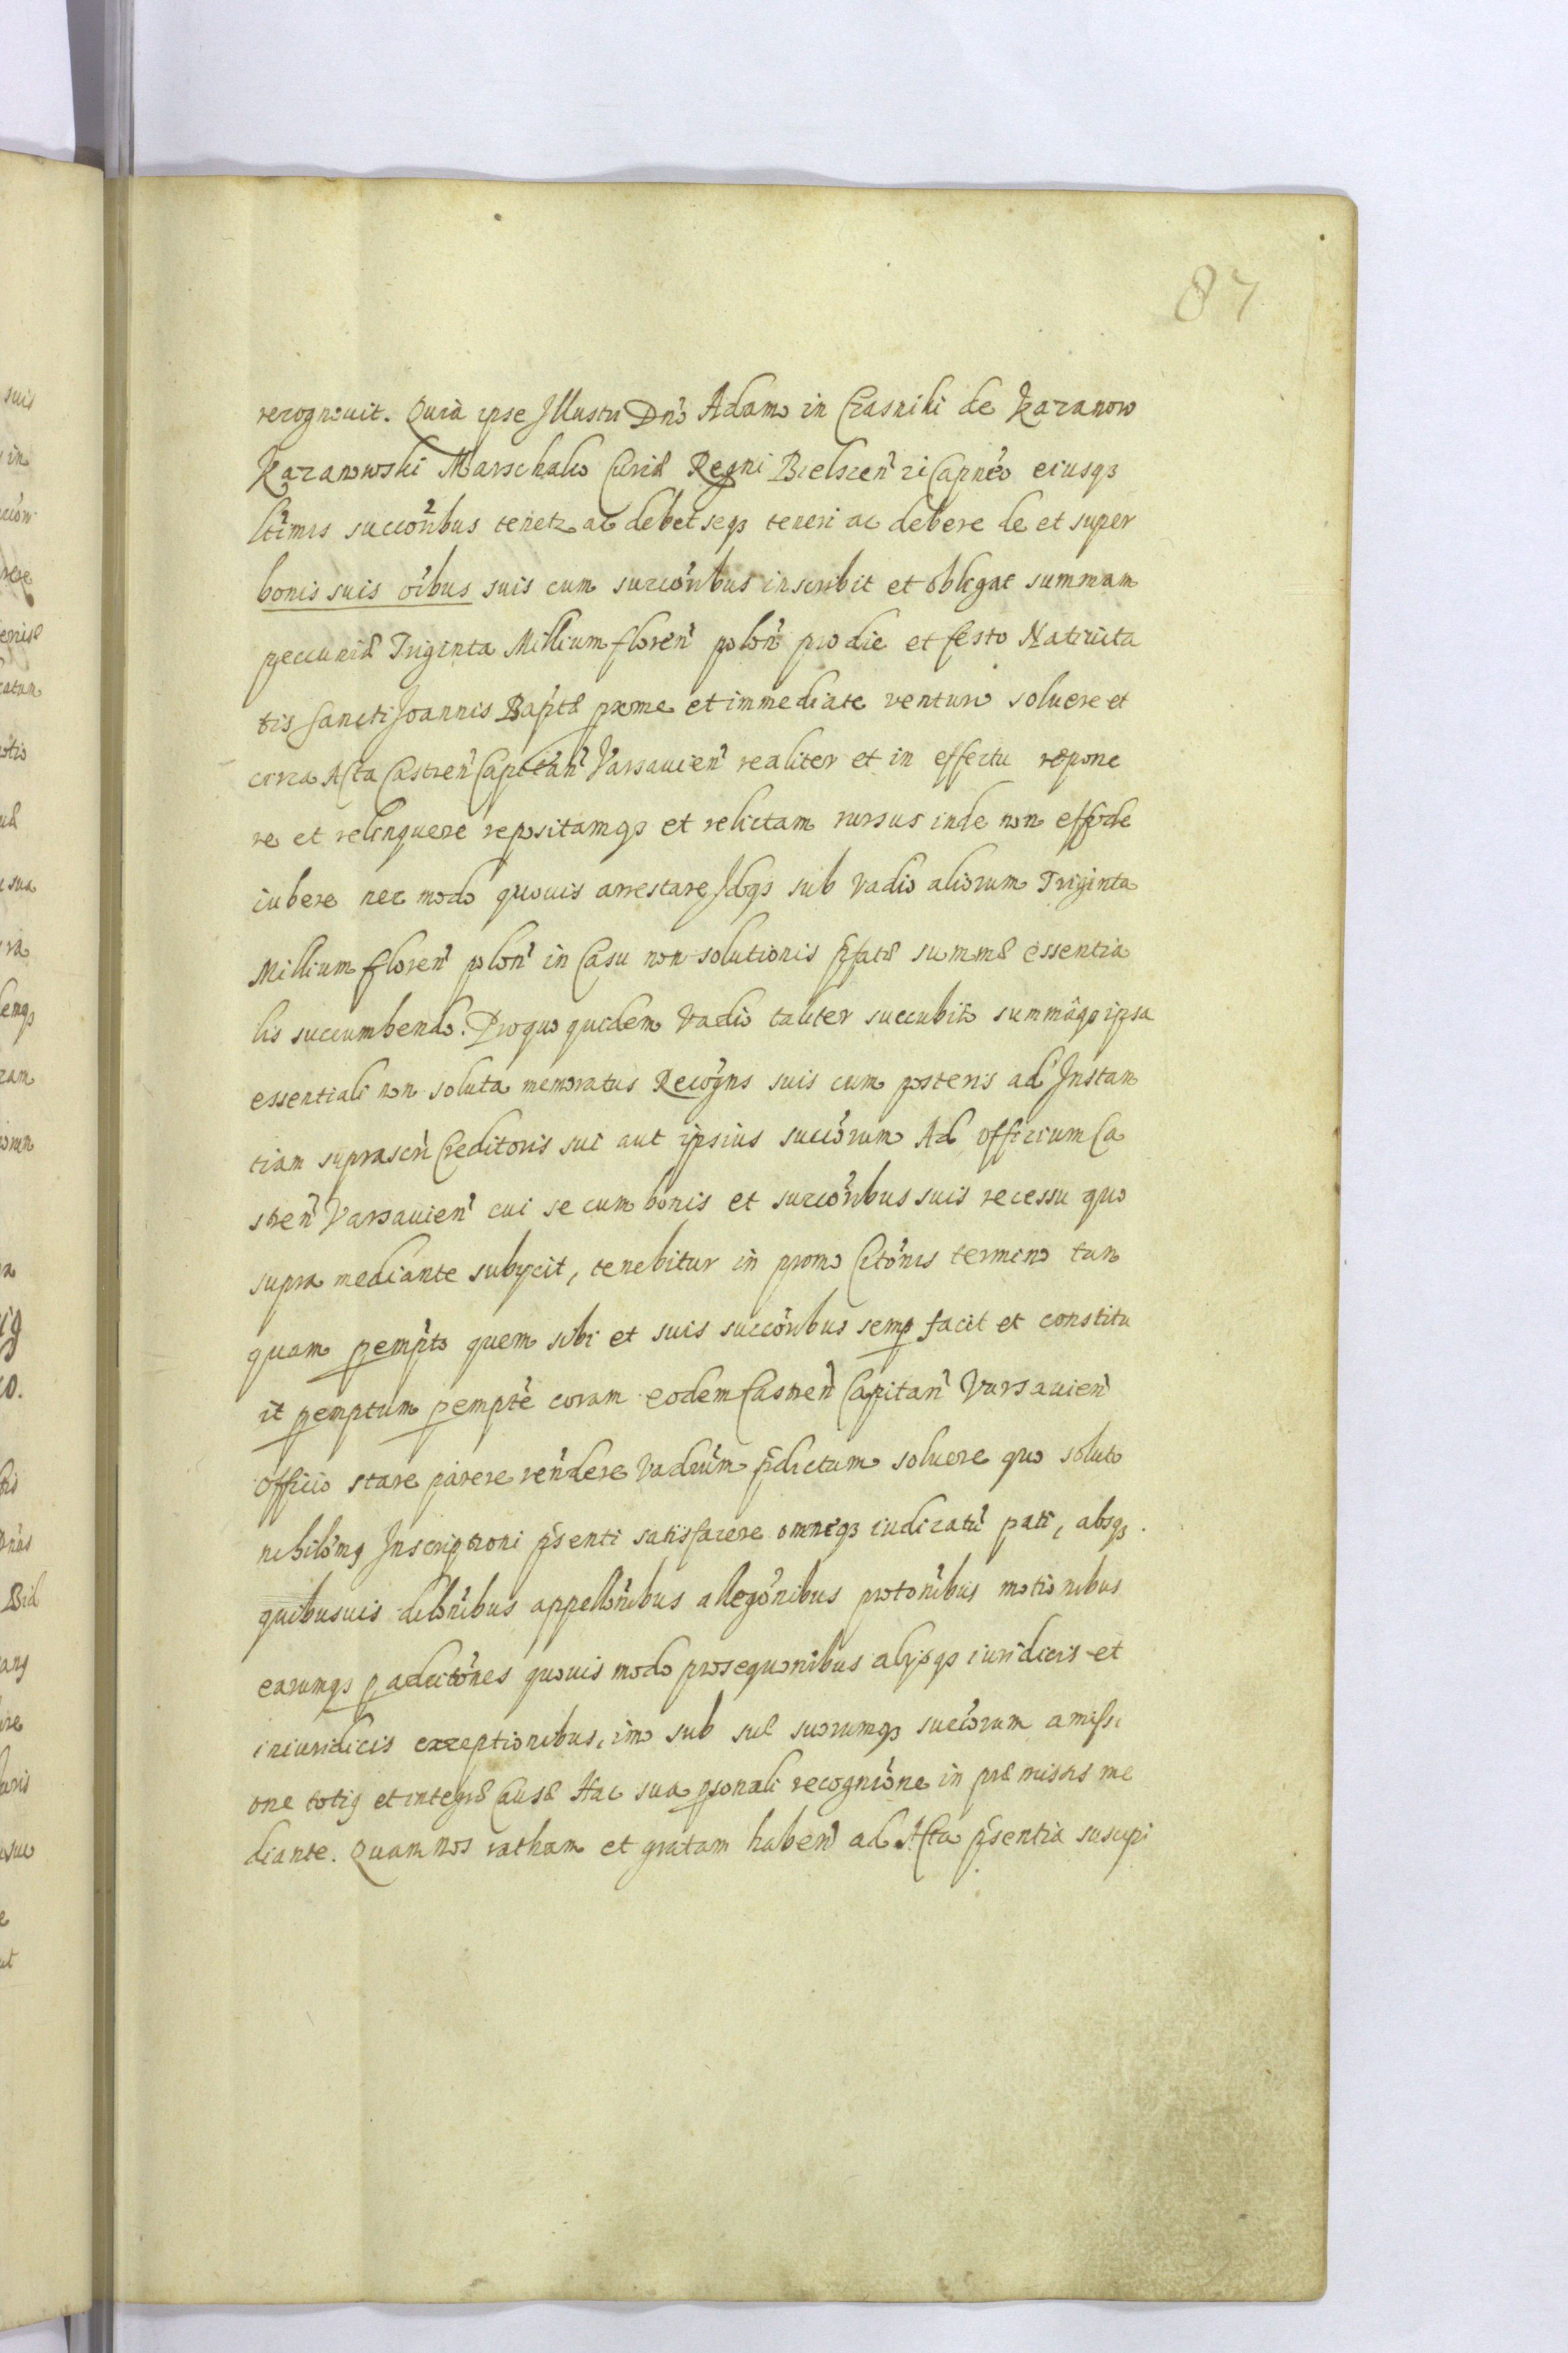 87
recognouit. Quia ipse Illustri Dnō Adamo in Crasniki de Kazanow
Kazanowski Marschalco Curiæ Regni Bielscen̄ ꝛc Capnēo eiusqꝫ
ltimis succōribus tenetꝛ ac debet seqꝫ teneri ac debere de et super
bonis suis oībus suis cum succōribus inscribit et obligat summam
pecuniæ Triginta Millium floren̄ polon̄ pro die et festo Natiuita
tis Sancti Joannis Baptæ proxme et immediate venturo soluere et
circa Acta Castren̄ Capitan̄ Varsauien̄ realiter et in effectu repone
re et relinquere repositamqꝫ et relictam rursus inde non
iubere nec modo quouis arrestare Idqꝫ sub vadio aliorum Triginta
Millium floren̄ polon̄ in Casu non solutionis p̄fatæ summæ essentia
lis succumbendo. Pro quo quidem Vadio taliter succubito summāqꝫ ipsa
essentiali non soluta memoratus Recogns suis cum posteris ad Instan
tiam suprascri Creditoris sui aut ipsius succōrum Ad Officium Ca
stren̄ Varsauien̄ cui se cum bonis et succōribus suis recessu quo
supra mediante subijcit, tenebitur in primo Citōnis termino tan
quam ꝑempto quem sibi et suis succōribus semꝑ facit et constitu
it ꝑemptum ꝑempte coram eodem Castren̄ Capitan̄ Varsauien̄
Officio stare parere rendere Vadium p̄dictum soluere quo soluto
nihilomꝯ Inscriptioni p̄senti satisfacere omneqꝫ iudicatū pati, absqꝫ
quibusuis dilōnibus appellōnibus allegōnibus protōnibus motionibus
earumqꝫ ꝑadictōnes quouis modo prosequonibus alijsqꝫ iuridicis et
iniuridicis exceptionibus, imo sub suæ suorumqꝫ succōrum amissi
one totiꝯ et integræ Causæ Hac sua ꝑsonali recognione in præmissis me
diante. Quam nos ratham et gratam haben̄ ad Acta p̄sentia suscepi